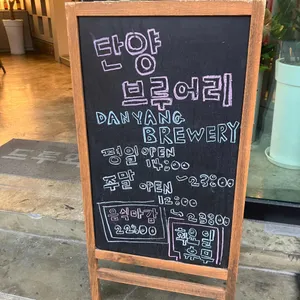 단양
브루어리
DANYANG
BREWERY
평일 OPEN
14:00 ~23:00
주말 OPEN
12:00 ~23:00
음식마감
22:00
휴무